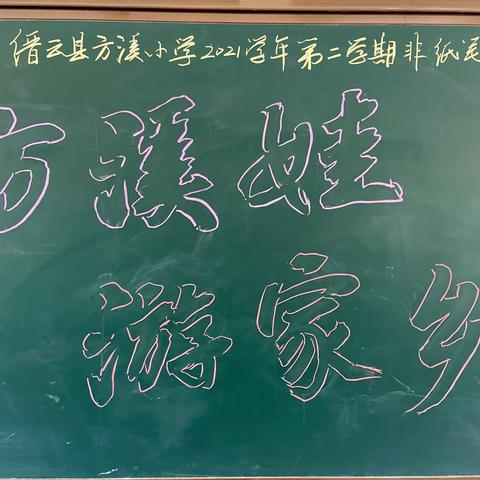 缙云县方溪小学2021学年第二学期非纸笔
方溪娃
游家乡